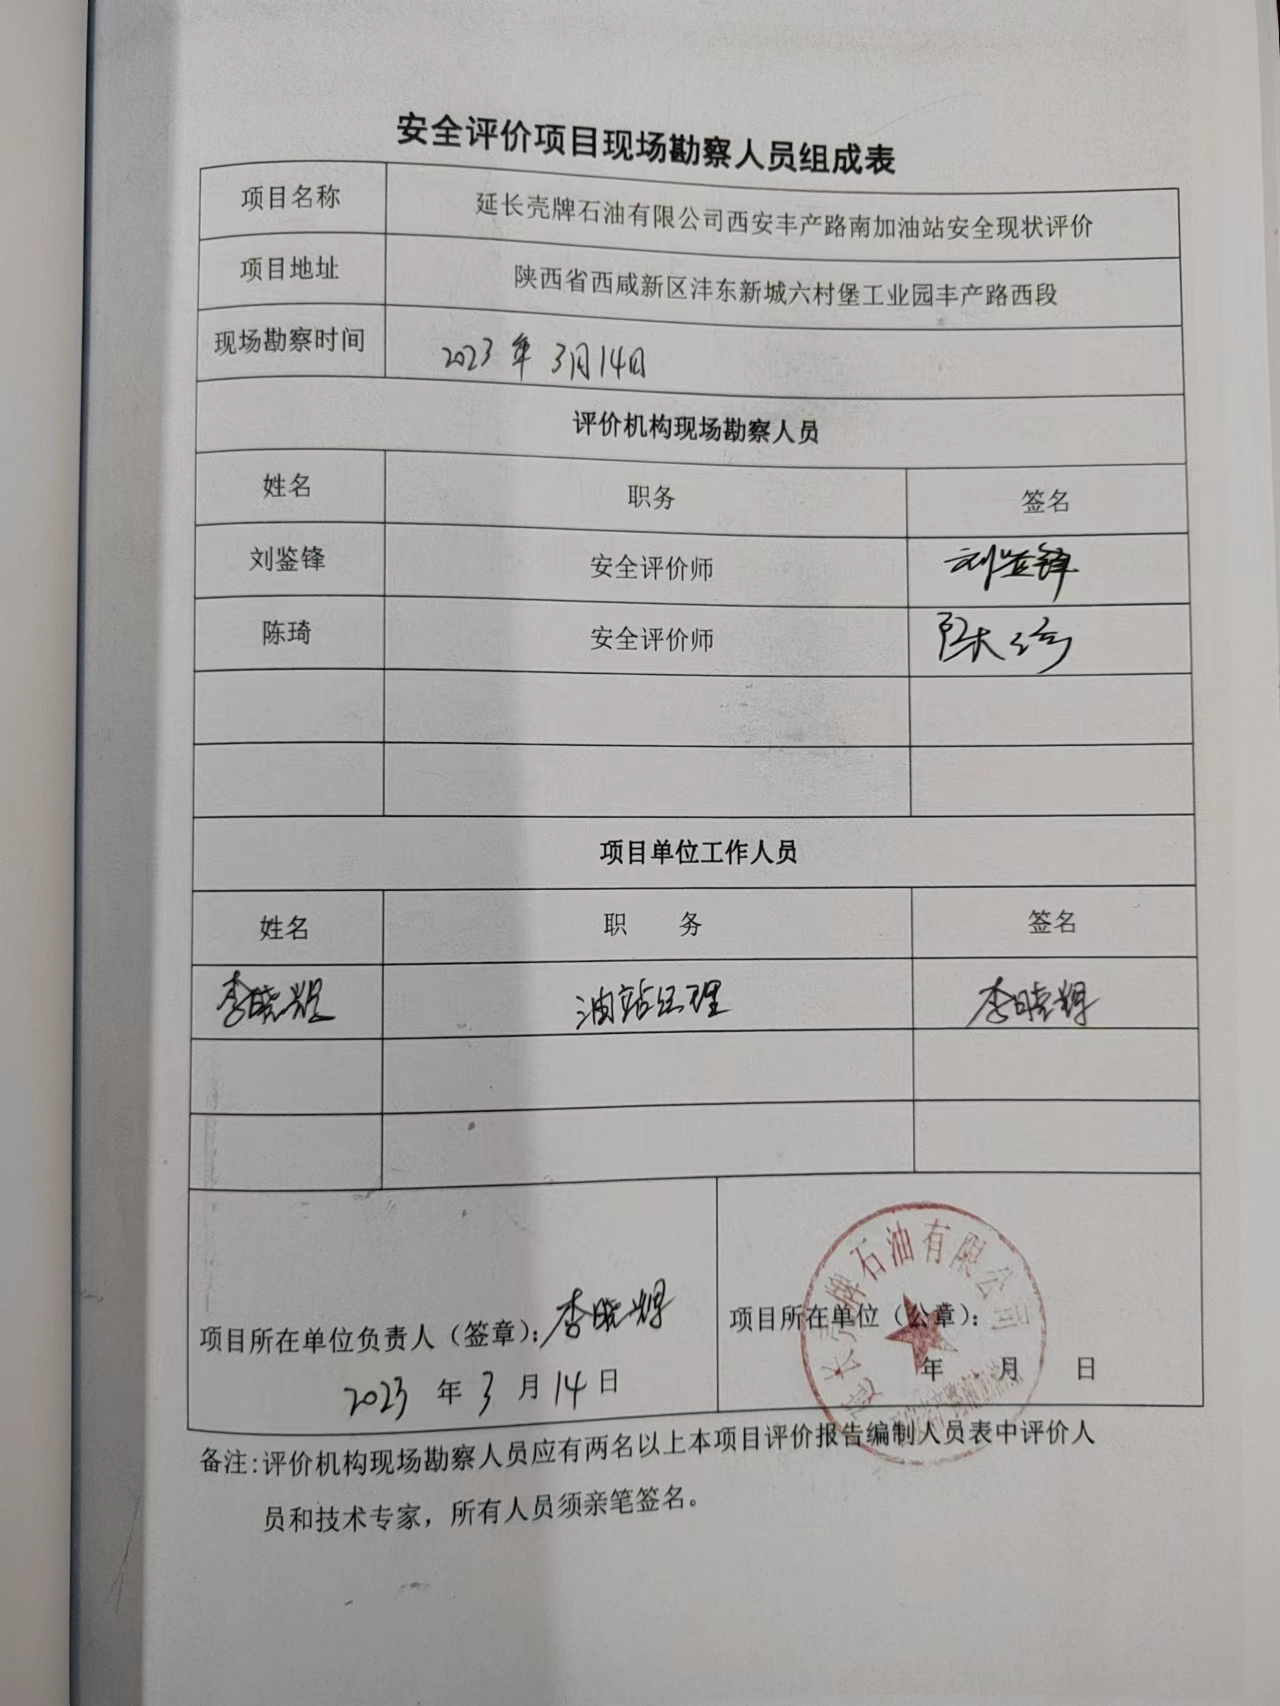 安全评价项目现场勘察人员组成表
项目名称 延长壳牌石油有限公司西安丰产路南加油站安全现状评价
项目地址 陕西省西咸新区沣东新城六村堡工业园丰产路西段
现场勘察时间 2023年3月14日
评价机构现场勘察人员
姓名 职务 签名
刘鉴锋 安全评价师 刘鉴锋
陈琦 安全评价师 陈琦
项目单位工作人员
姓名 职 务 签名
李晓辉 油站经理 李晓辉
延长壳牌石油有限公司
项目所在单位负责人（签章）：李晓辉 项目所在单位（公章）：
2023年3月14日 年 月 日
备注：评价机构现场勘察人员应有两名以上本项目评价报告编制人员表中评价人
员和技术专家，所有人员须亲笔签名。